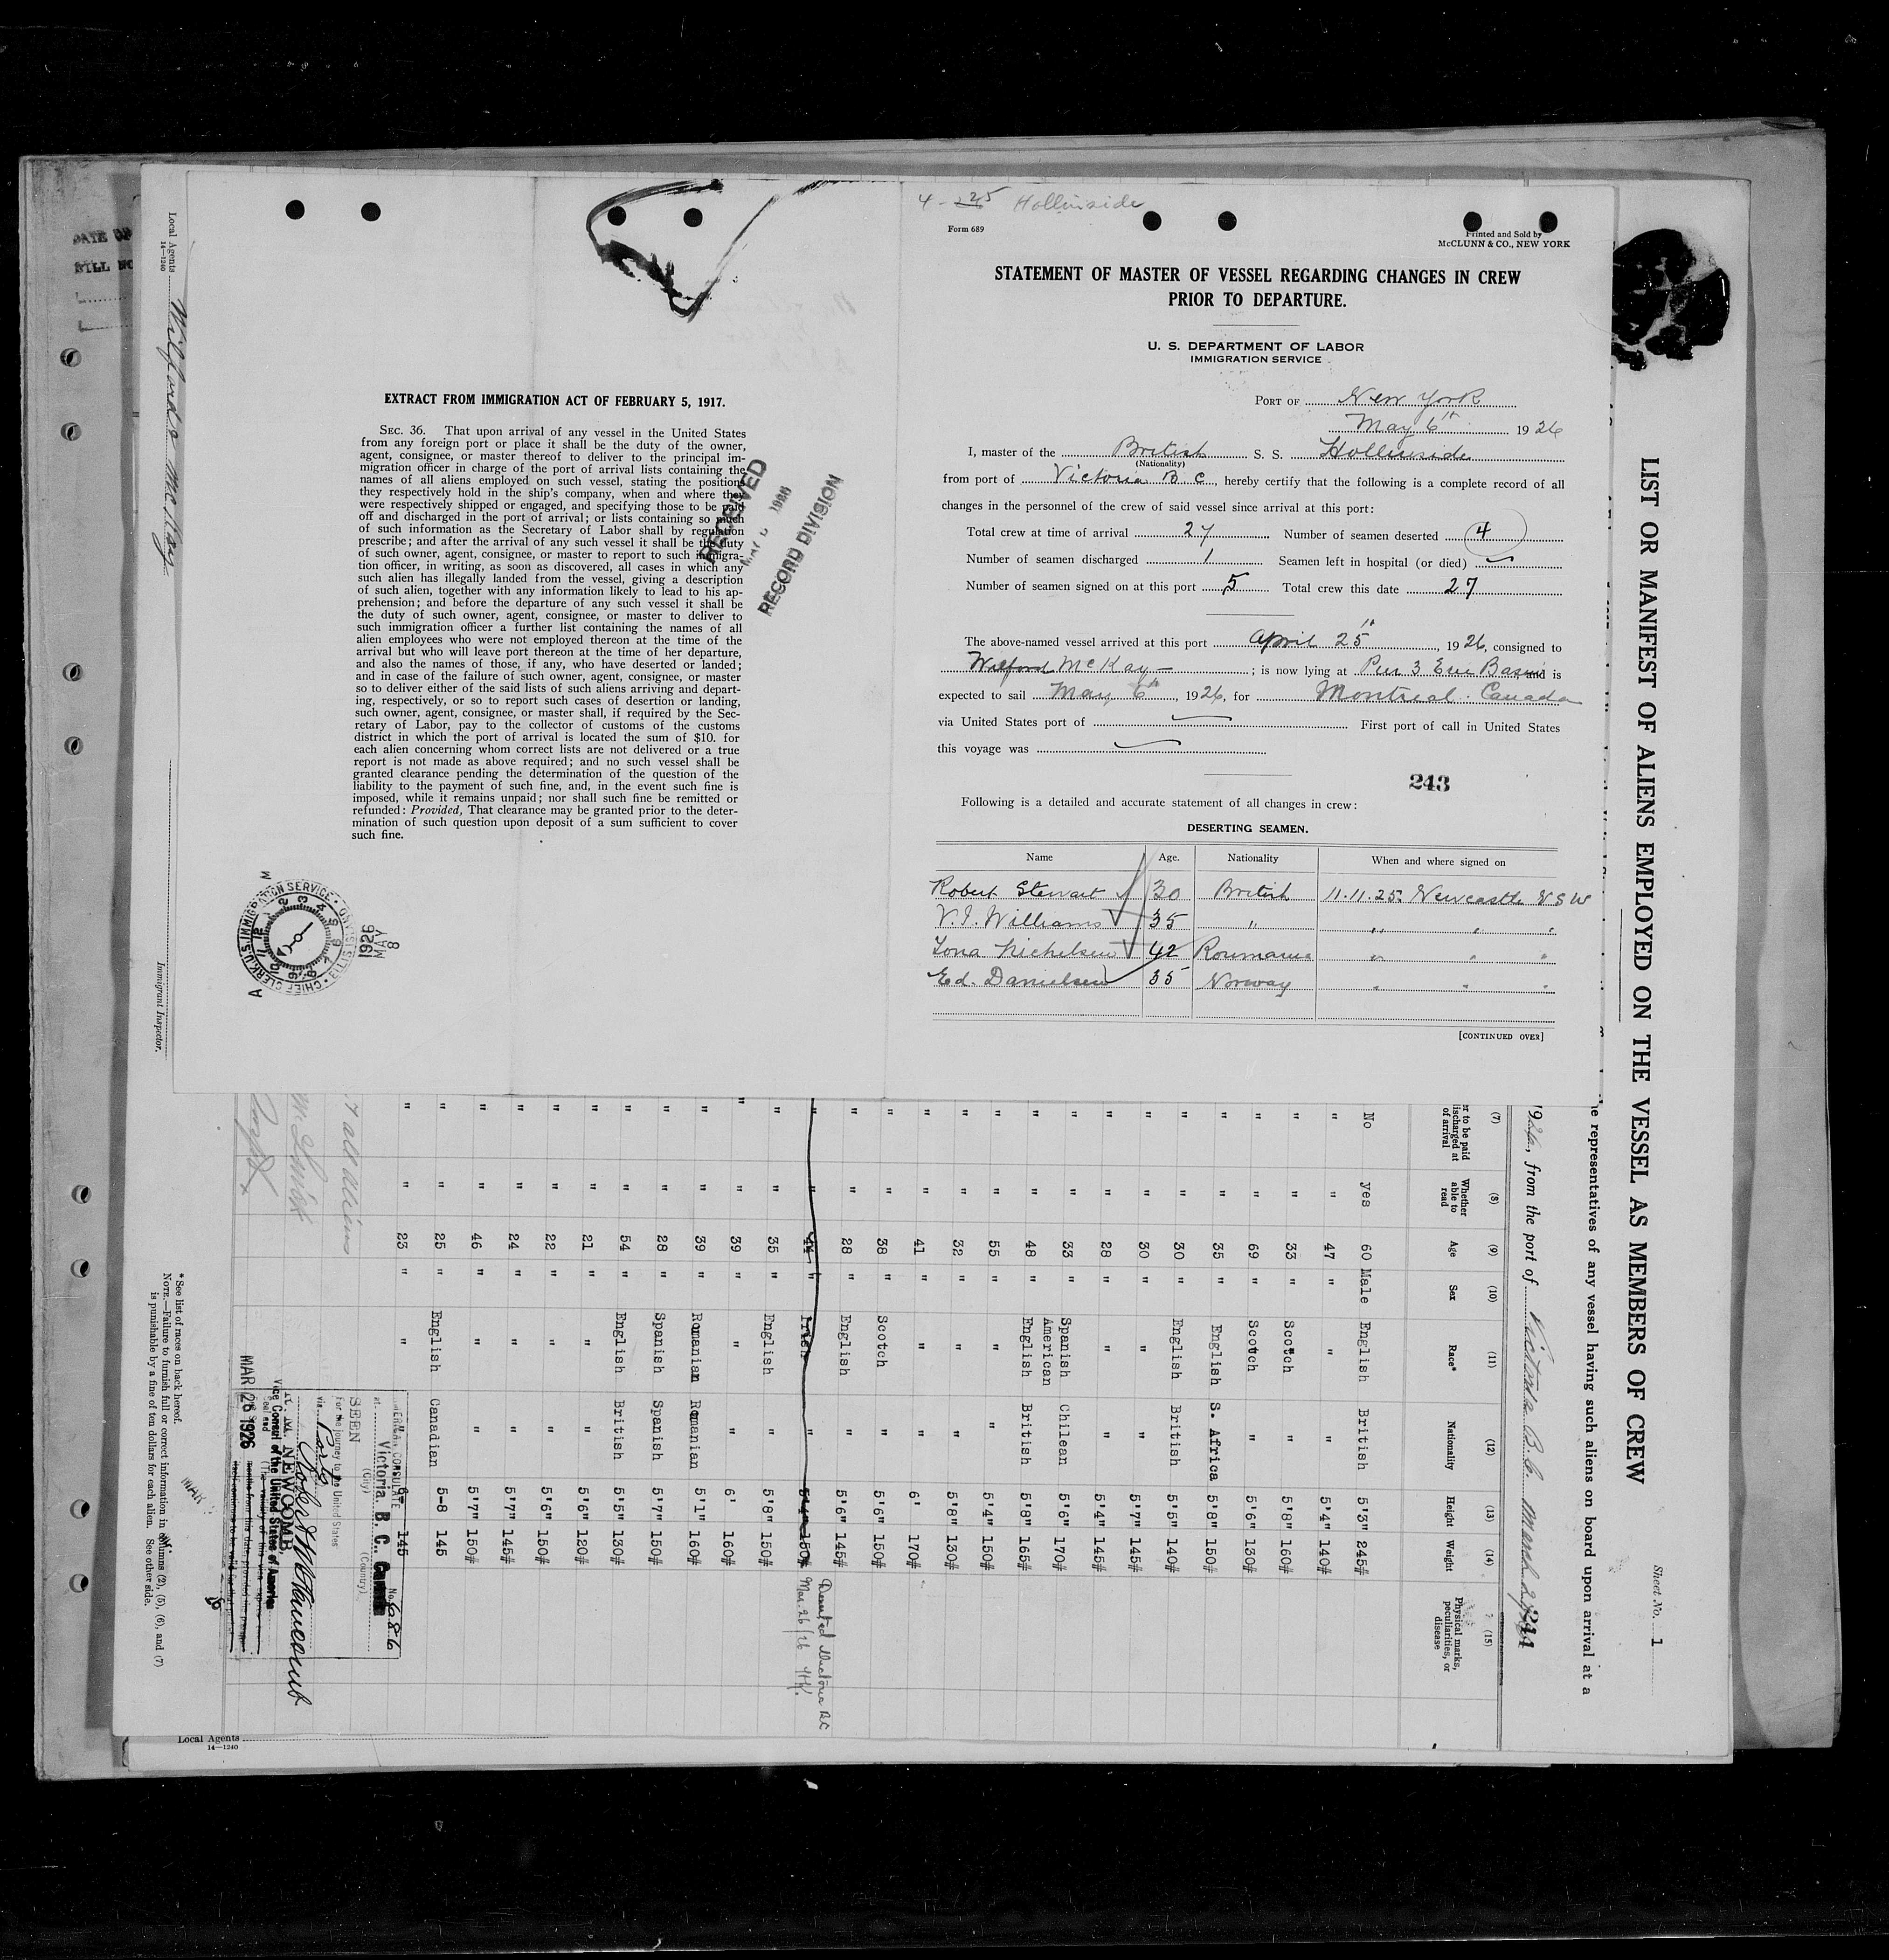 4-25 Hollinside
Form 689
Printed and Sold by
McCLUNN & CO., NEW YORK
STATEMENT OF MASTER OF VESSEL REGARDING CHANGES IN CREW
PRIOR TO DEPARTURE.
U. S. DEPARTMENT OF LABOR
IMMIGRATION SERVICE
PORT OF New York
May 6th 1926
I, master of the British S. S. Hollinside
(Nationality)
from port of Victoria B. C., hereby certify that the following is a complete record of all
changes in the personnel of the crew of said vessel since arrival at this port:
Total crew at time of arrival 27 Number of seamen deserted 4
Number of seamen discharged 1 Seamen left in hospital (or died)
Number of seamen signed on at this port 5 Total crew this date 27
The above-named vessel arrived at this port April 25th, 1926, consigned to
Wilford McKay; is now lying at Pier 3 Erie Basin and is
expected to sail May 6th, 1926, for Montreal. Canada
via United States port of First port of call in United States
this voyage was
243
Following is a detailed and accurate statement of all changes in crew:
DESERTING SEAMEN.
Name Age. Nationality When and where signed on
Robert Stewart 30 British 11.11.25 Newcastle N S W
V. I. Williams 35 " " " "
Iona Nichelsen 42 Roumania " " "
Ed. Danielsen 35 Norway " " "
[CONTINUED OVER]
EXTRACT FROM IMMIGRATION ACT OF FEBRUARY 5, 1917.
SEC. 36. That upon arrival of any vessel in the United States
from any foreign port or place it shall be the duty of the owner,
agent, consignee, or master thereof to deliver to the principal im-
migration officer in charge of the port of arrival lists containing the
names of all aliens employed on such vessel, stating the positions
they respectively hold in the ship's company, when and where they
were respectively shipped or engaged, and specifying those to be paid
off and discharged in the port of arrival; or lists containing so much
of such information as the Secretary of Labor shall by regulation
prescribe; and after the arrival of any such vessel it shall be the duty
of such owner, agent, consignee, or master to report to such immigra-
tion officer, in writing, as soon as discovered, all cases in which any
such alien has illegally landed from the vessel, giving a description
of such alien, together with any information likely to lead to his ap-
prehension; and before the departure of any such vessel it shall be
the duty of such owner, agent, consignee, or master to deliver to
such immigration officer a further list containing the names of all
alien employees who were not employed thereon at the time of the
arrival but who will leave port thereon at the time of her departure,
and also the names of those, if any, who have deserted or landed;
and in case of the failure of such owner, agent, consignee, or master
so to deliver either of the said lists of such aliens arriving and depart-
ing, respectively, or so to report such cases of desertion or landing,
such owner, agent, consignee, or master shall, if required by the Sec-
retary of Labor, pay to the collector of customs of the customs
district in which the port of arrival is located the sum of $10. for
each alien concerning whom correct lists are not delivered or a true
report is not made as above required; and no such vessel shall be
granted clearance pending the determination of the question of the
liability to the payment of such fine, and, in the event such fine is
imposed, while it remains unpaid; nor shall such fine be remitted or
refunded: Provided, That clearance may be granted prior to the deter-
mination of such question upon deposit of a sum sufficient to cover
such fine.
RECEIVED
RECORD DIVISION
CHIEF CLERK. U.S. IMMIGRATION SERVICE. ELLIS
1926
MAY
8
LIST OR MANIFEST OF ALIENS EMPLOYED ON THE VESSEL AS MEMBERS OF CREW
Sheet No. 1
representatives of any vessel having such aliens on board upon arrival at a
1926, from the port of Victoria B.C. March 26
(7) (8) (9) (10) (11) (12) (13) (14) (15)
er to be paid discharged at of arrival
Whether able to read
Age
Sex
Race*
Nationality
Height
Weight
Physical marks, peculiarities, or disease
No yes 60 Male English British 5'3" 245#
" " 47 " " " 5'4" 140#
" " 33 " Scotch " 5'8" 160#
" " 69 " Scotch " 5'6" 130#
" " 35 " English S. Africa 5'8" 150#
" " 30 " English British 5'5" 140#
" " 30 " " " 5'7" 145#
" " 28 " " " 5'4" 145#
" " 33 " Spanish American Chilean 5'6" 170#
" " 48 " English British 5'8" 165#
" " 55 " " " 5'4" 150#
" " 32 " " " 5'8" 130#
" " 41 " " " 6' 170#
" " 38 " Scotch " 5'6" 150#
" " 28 " English " 5'6" 145#
" " 44 " Irish 5'4" 150# Deserted Victoria B.C. Mar. 26/26
" " 35 " English " 5'8" 150#
" " 39 " " " 6' 160#
" " 39 " Romanian Romanian 5'1" 160#
" " 28 " Spanish Spanish 5'7" 150#
" " 54 " English British 5'5" 130#
" " 21 " " " 5'6" 120#
" " 22 " " " 5'6" 150#
" " 24 " " " 5'7" 145#
" " 46 " " " 5'7" 150#
" " 25 " English Canadian 5-8 145
" " 23 " " 145
AMERICAN CONSULATE
at Victoria. B. C. Canada
No. 686
(City) (Country)
SEEN
For the journey to the United States
via
Robert M Newcomb
R. M. NEWCOMB,
Vice Consul of the United States of America
MAR 26 1926
*See list of races on back hereof.
NOTE.—Failure to furnish full or correct information in columns (2), (5), (6), and (7)
is punishable by a fine of ten dollars for each alien. See other side.
Local Agents Wilford & McKay
14—1240
Immigrant Inspector.
Local Agents
14—1240
DATE OF
BILL NO